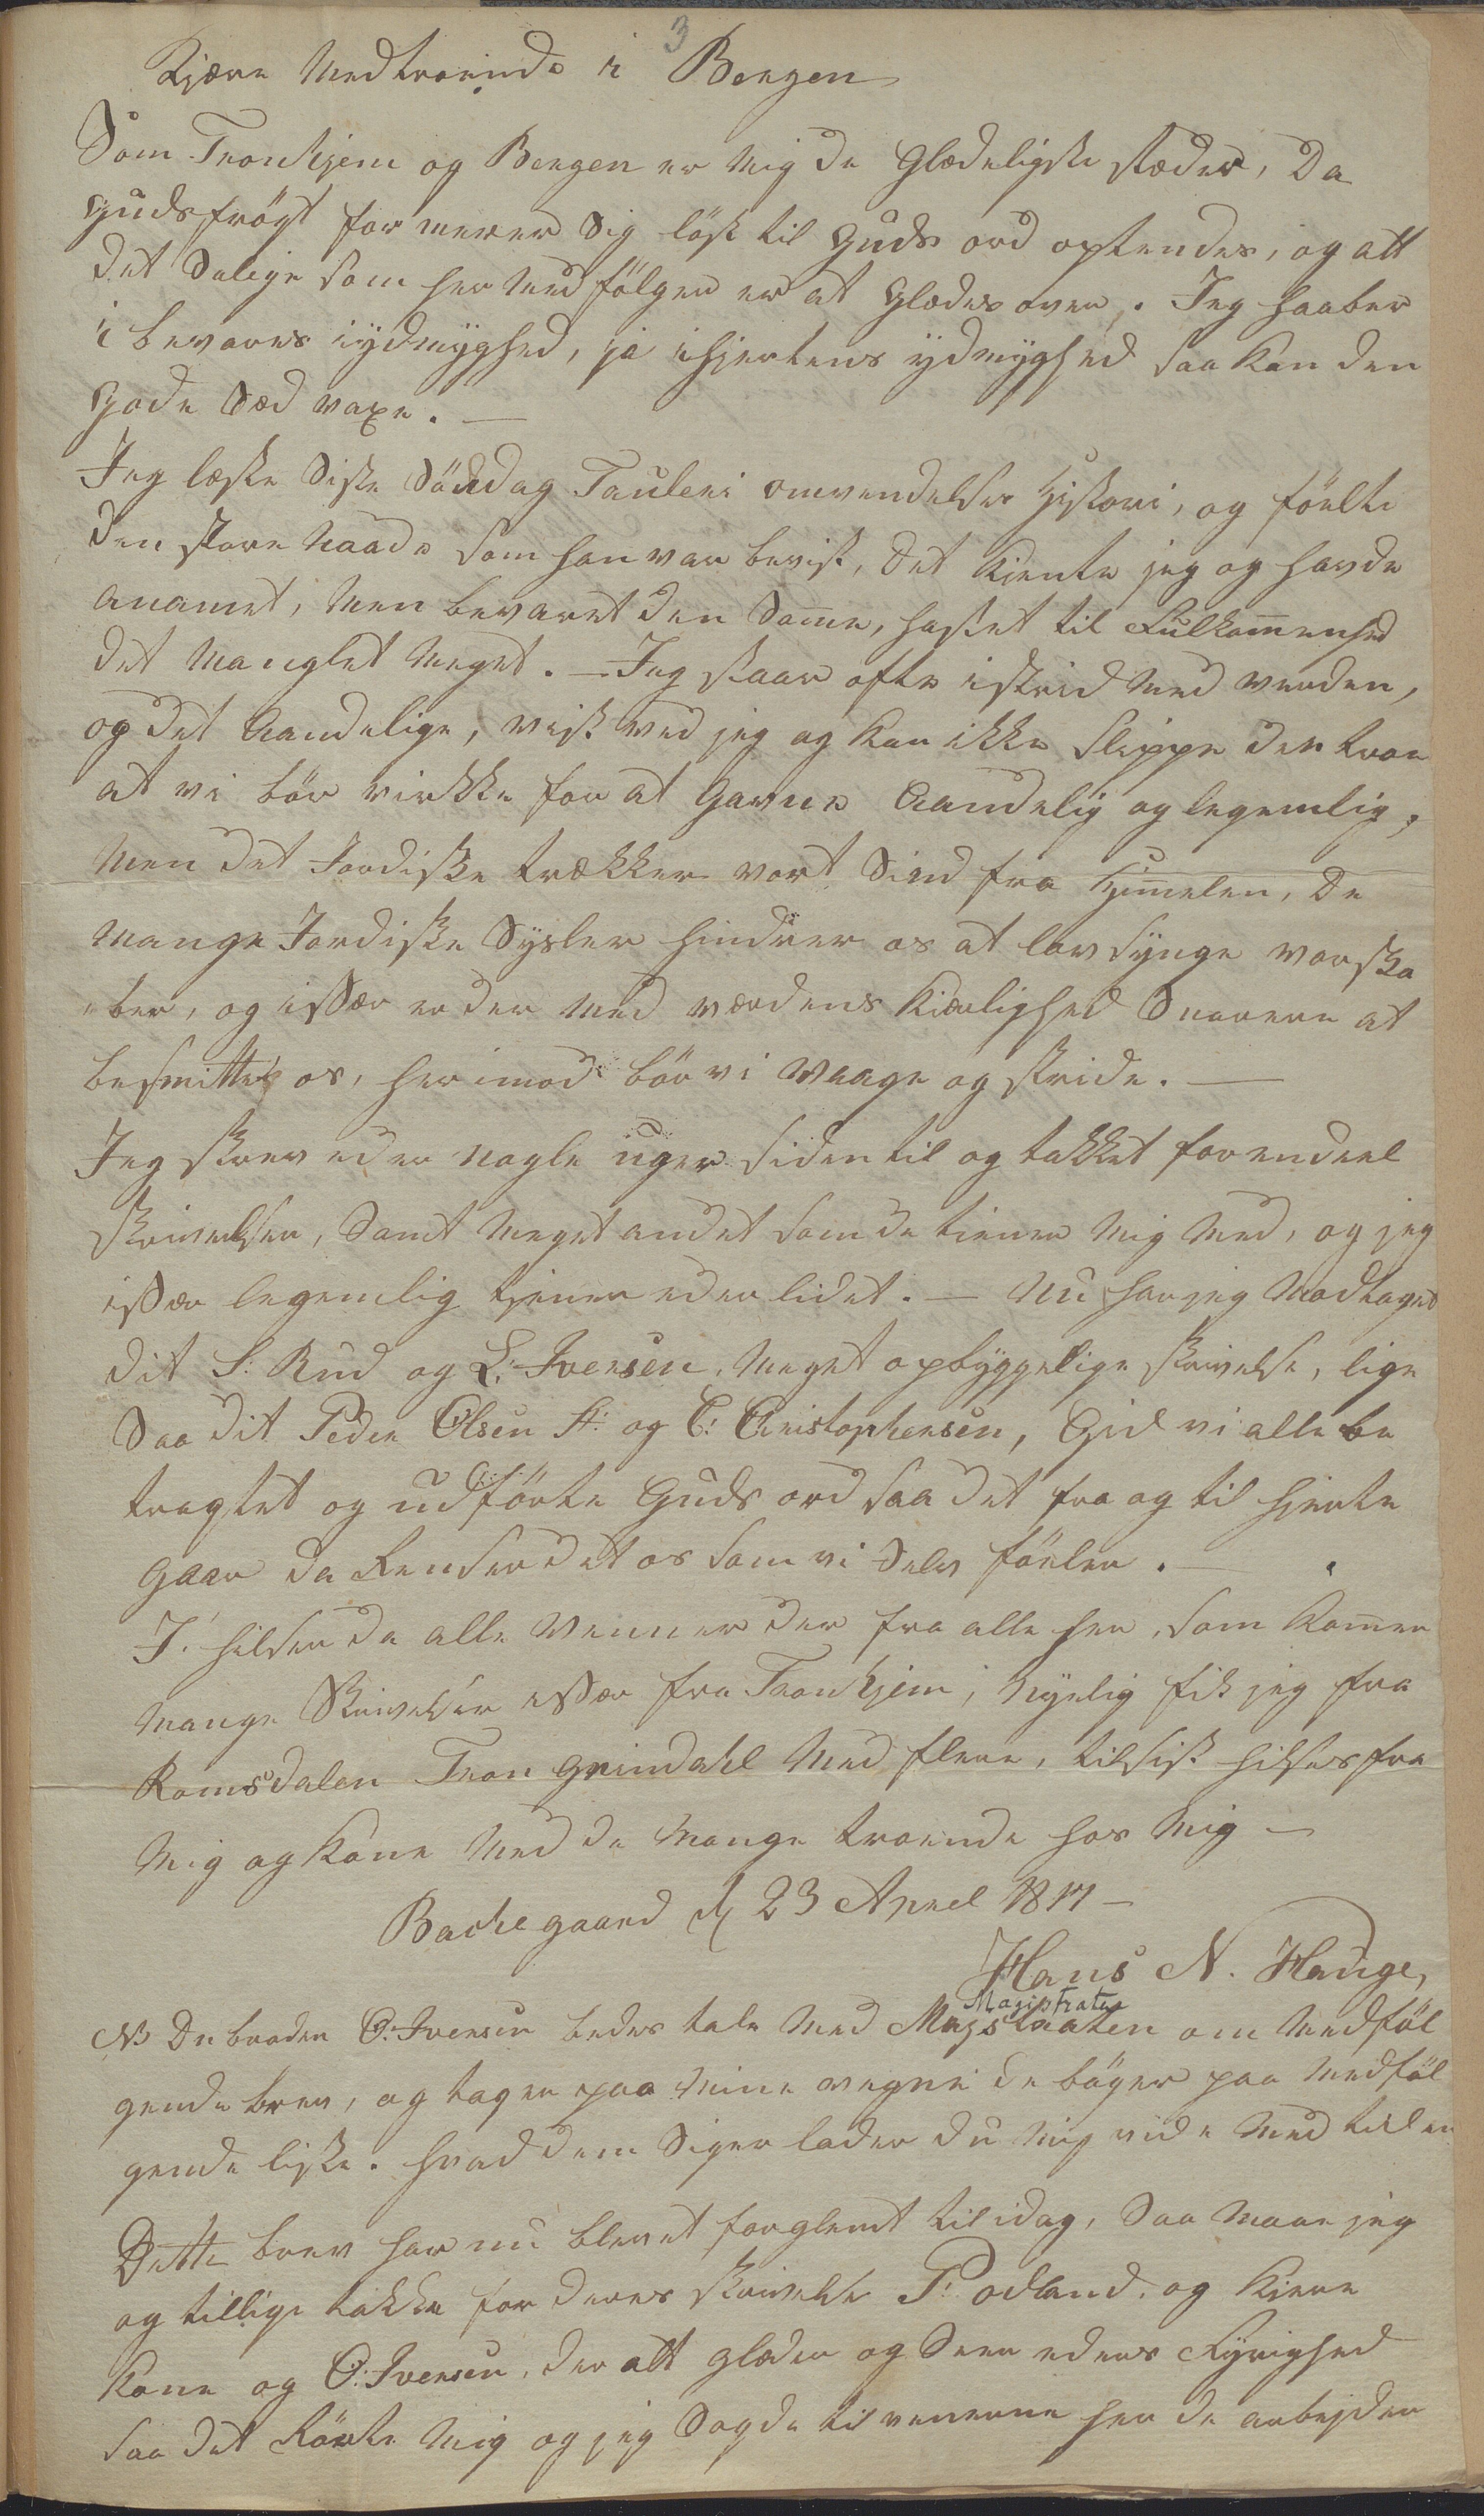 3
Kjære Medtroende i Bergen
Som Tronhjem og Bergen er mig de Glædeligste stæder, Da
Gudsfrögt formerer Sig löst til Guds ord optendes, og alt
det Salige som her Med fölger er at Glædes over. Jeg haaber
i bevares i ydmyghed, ja i hjertens ydmyghed saa kan den
Gode Sæd vaxe. —
Jeg læste Siste Söndag Tauleri omvendelses Historie, og föelte
den store Naade som han var bevist, det kiente jeg og havde
anamet, Men bevaret den Samme, hastet til Fulkommenhed
det Manglet Meget. — Jeg staar ofte i strid Med verden,
og det Aandelige, vist ved jeg og kan ikke Slippe den troe
at vi bör virkke for at Gavne Aandelig og legemlig,
Men det Jordiske trækker vort Sind fra Himelen, De
Mange Jordiske Sysler hindrer os at lovsynge vor ska
ber, og issær er der Med værdens Kierlighed Snarere at
besmitte os, herimod bör vi Vaage og stride. —
Jeg skrev eder Nogle uger siden til og takket for endeel
skrivelser, Samt Meget andet som de tiener Mig Med, og jeg
issær legemlig tjener eder lidet. — Nu har jeg Modtaget
dit S: Rud og L: Iversen, Meget opbyggelige skrivelse, lige
Saa dit Peder Olsen H: og C: Christophersen, Gid vi alle be
tragtet og udförte Guds ord saa det fra og til hjerte
Gaar da kender det os som vi Selv föeler. —
I. hilser da alle Venner der fra alle her, som kommer
Mange Skrivelser issær fra Tronhjem, Nyelig fik jeg fra
Romsdalen Tron Grindahl Med flere, tilsist hilses fra
Mig og Kone Med de Mange troende hos Mig —
Backegaard d 23 Aprel 1817 —
Hans N. Hauge,
Magistraten
NB Du broder O: Iversen bedes tale Med Magstraaten om Medföl
gende brev, og tager paa Mine vegne de böger paa Medföl
gende liste. hvad dem Siger lader du Mig vide Med tiden
Dette brev har nu blevet forglemt til idag, Saa Maae jeg
og tillige takke for deres skrivelse P: odland. og Kiere
Kone og O: Iversen, der alt glæder og Seer eders Fyrighed
saa det Rörte Mig og jeg Sagde til venerne her de arbejder